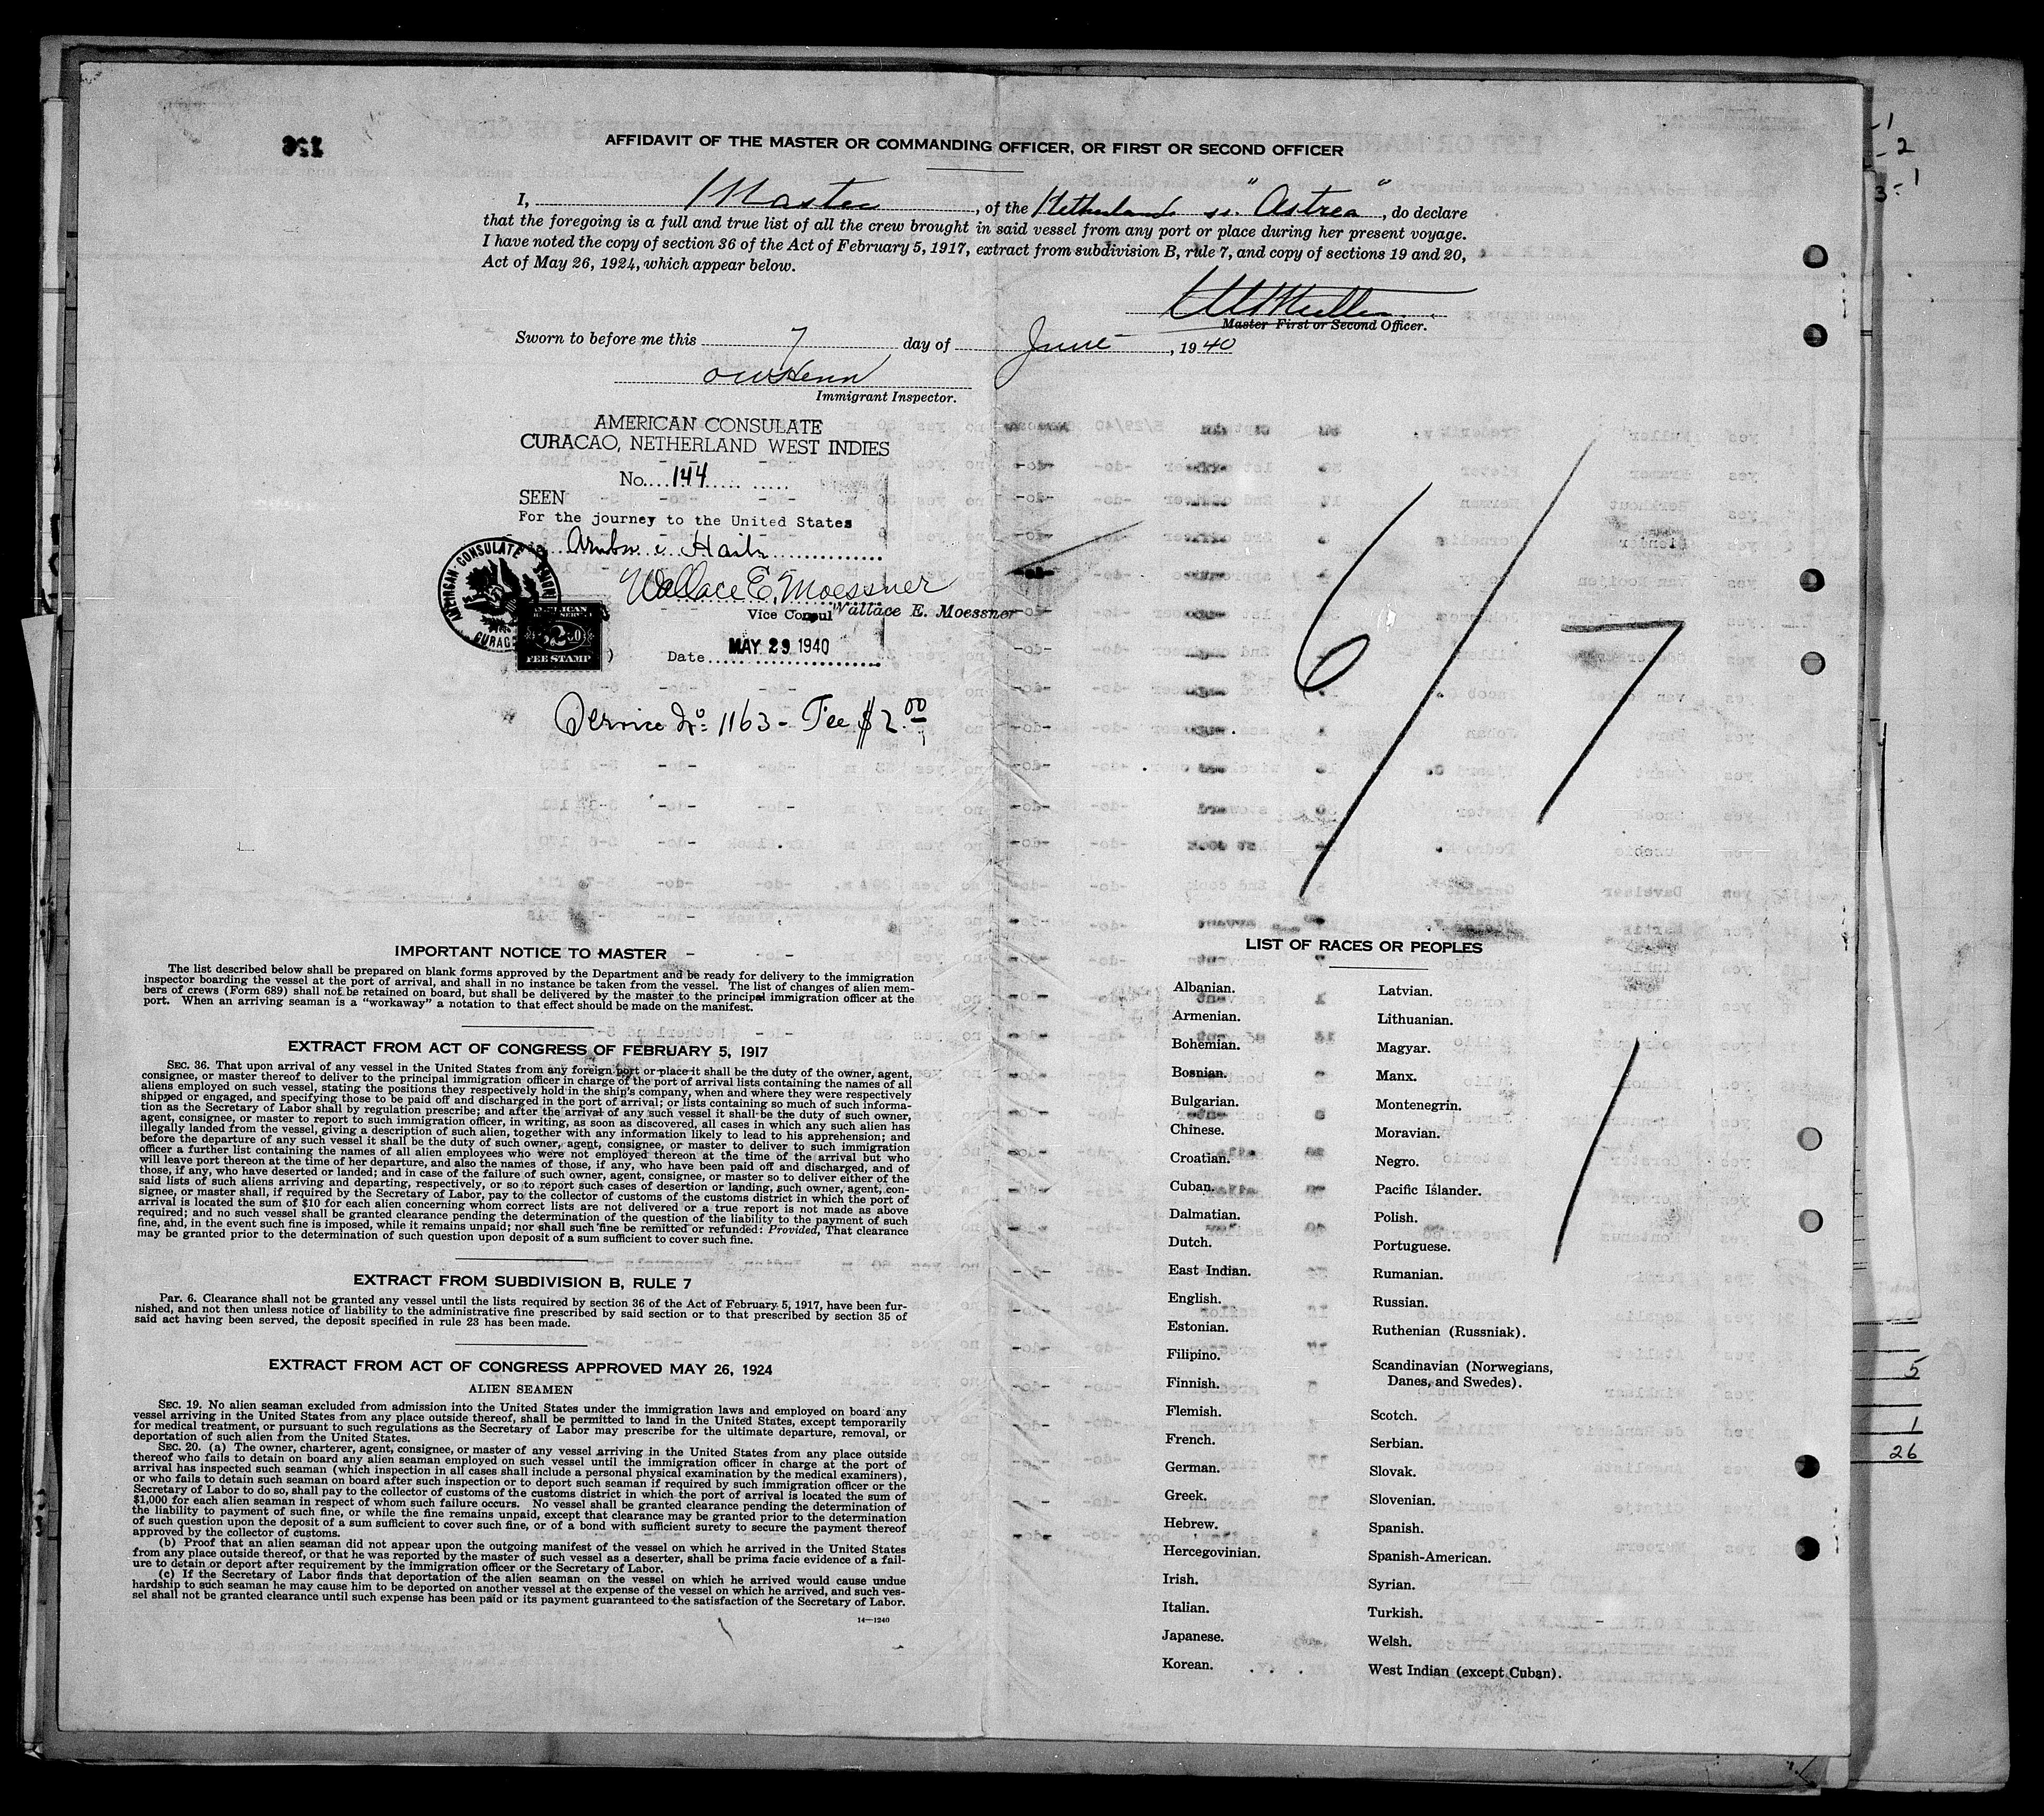 AFFIDAVIT OF THE MASTER OR COMMANDING OFFICER, OR FIRST OR SECOND OFFICER
I, Master, of the Netherlands ss. "Astrea", do declare
that the foregoing is a full and true list of all the crew brought in said vessel from any port or place during her present voyage.
I have noted the copy of section 36 of the Act of February 5, 1917, extract from subdivision B, rule 7, and copy of sections 19 and 20,
Act of May 26, 1924, which appear below.
Master First or Second Officer.
Sworn to before me this 7 day of June, 1940
Immigrant Inspector.
AMERICAN CONSULATE
CURACAO, NETHERLAND WEST INDIES
No....144
SEEN
For the journey to the United States
Wallace E. Moessner
Vice Consul Wallace E. Moessner
AMERICAN CONSULATE
FEE STAMP
Date MAY 29 1940
Service No: 1163 - Fee $2.00
6/7
IMPORTANT NOTICE TO MASTER
The list described below shall be prepared on blank forms approved by the Department and be ready for delivery to the immigration
inspector boarding the vessel at the port of arrival, and shall in no instance be taken from the vessel. The list of changes of alien mem-
bers of crews (Form 689) shall not be retained on board, but shall be delivered by the master to the principal immigration officer at the
port. When an arriving seaman is a "workaway" a notation to that effect should be made on the manifest.
EXTRACT FROM ACT OF CONGRESS OF FEBRUARY 5, 1917
SEC. 36. That upon arrival of any vessel in the United States from any foreign port or place it shall be the duty of the owner, agent,
consignee, or master thereof to deliver to the principal immigration officer in charge of the port of arrival lists containing the names of all
aliens employed on such vessel, stating the positions they respectively hold in the ship's company, when and where they were respectively
shipped or engaged, and specifying those to be paid off and discharged in the port of arrival; or lists containing so much of such informa-
tion as the Secretary of Labor shall by regulation prescribe; and after the arrival of any such vessel it shall be the duty of such owner,
agent, consignee, or master to report to such immigration officer, in writing, as soon as discovered, all cases in which any such alien has
illegally landed from the vessel, giving a description of such alien, together with any information likely to lead to his apprehension; and
before the departure of any such vessel it shall be the duty of such owner, agent, consignee, or master to deliver to such immigration
officer a further list containing the names of all alien employees who were not employed thereon at the time of the arrival but who
will leave port thereon at the time of her departure, and also the names of those, if any, who have been paid off and discharged, and of
those, if any, who have deserted or landed; and in case of the failure of such owner, agent, consignee, or master so to deliver either of the
said lists of such aliens arriving and departing, respectively, or so to report such cases of desertion or landing, such owner, agent, con-
signee, or master shall, if required by the Secretary of Labor, pay to the collector of customs of the customs district in which the port of
arrival is located the sum of $10 for each alien concerning whom correct lists are not delivered or a true report is not made as above
required; and no such vessel shall be granted clearance pending the determination of the question of the liability to the payment of such
fine, and, in the event such fine is imposed, while it remains unpaid; nor shall such fine be remitted or refunded: Provided, That clearance
may be granted prior to the determination of such question upon deposit of a sum sufficient to cover such fine.
EXTRACT FROM SUBDIVISION B, RULE 7
Par. 6. Clearance shall not be granted any vessel until the lists required by section 36 of the Act of February 5, 1917, have been fur-
nished, and not then unless notice of liability to the administrative fine prescribed by said section or to that prescribed by section 35 of
said act having been served, the deposit specified in rule 23 has been made.
EXTRACT FROM ACT OF CONGRESS APPROVED MAY 26, 1924
ALIEN SEAMEN
SEC. 19. No alien seaman excluded from admission into the United States under the immigration laws and employed on board any
vessel arriving in the United States from any place outside thereof, shall be permitted to land in the United States, except temporarily
for medical treatment, or pursuant to such regulations as the Secretary of Labor may prescribe for the ultimate departure, removal, or
deportation of such alien from the United States.
SEC. 20. (a) The owner, charterer, agent, consignee, or master of any vessel arriving in the United States from any place outside
thereof who fails to detain on board any alien seaman employed on such vessel until the immigration officer in charge at the port of
arrival has inspected such seaman (which inspection in all cases shall include a personal physical examination by the medical examiners),
or who fails to detain such seaman on board after such inspection or to deport such seaman if required by such immigration officer or the
Secretary of Labor to do so, shall pay to the collector of customs of the customs district in which the port of arrival is located the sum of
$1,000 for each alien seaman in respect of whom such failure occurs. No vessel shall be granted clearance pending the determination of
the liability to the payment of such fine, or while the fine remains unpaid, except that clearance may be granted prior to the determination
of such question upon the deposit of a sum sufficient to cover such fine, or of a bond with sufficient surety to secure the payment thereof
approved by the collector of customs.
(b) Proof that an alien seaman did not appear upon the outgoing manifest of the vessel on which he arrived in the United States
from any place outside thereof, or that he was reported by the master of such vessel as a deserter, shall be prima facie evidence of a fail-
ure to detain or deport after requirement by the immigration officer or the Secretary of Labor.
(c) If the Secretary of Labor finds that deportation of the alien seaman on the vessel on which he arrived would cause undue
hardship to such seaman he may cause him to be deported on another vessel at the expense of the vessel on which he arrived, and such ves-
sel shall not be granted clearance until such expense has been paid or its payment guaranteed to the satisfaction of the Secretary of Labor.
14—1240
LIST OF RACES OR PEOPLES
Albanian.
Armenian.
Bohemian.
Bosnian.
Bulgarian.
Chinese.
Croatian.
Cuban.
Dalmatian.
Dutch.
East Indian.
English.
Estonian.
Filipino.
Finnish.
Flemish.
French.
German.
Greek.
Hebrew.
Hercegovinian.
Irish.
Italian.
Japanese.
Korean.
Latvian.
Lithuanian.
Magyar.
Manx.
Montenegrin.
Moravian.
Negro.
Pacific Islander.
Polish.
Portuguese.
Rumanian.
Russian.
Ruthenian (Russniak).
Scandinavian (Norwegians,
Danes, and Swedes).
Scotch.
Serbian.
Slovak.
Slovenian.
Spanish.
Spanish-American.
Syrian.
Turkish.
Welsh.
West Indian (except Cuban).
5
1
26